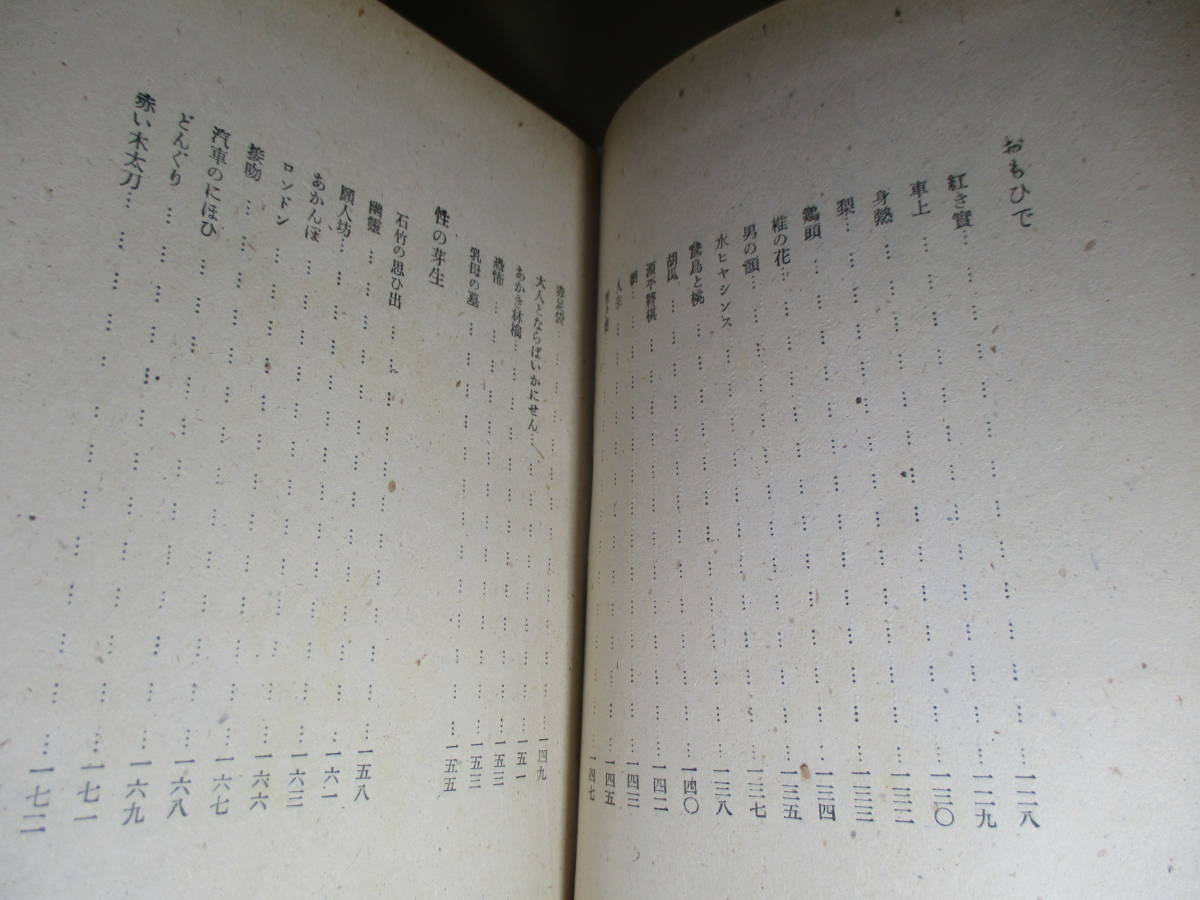 おもひで
紅き實………一二八
車上………一二九
身熱………一三〇
梨………一三二
鶏頭………一三三
椎の花………一三四
男の顔………一三五
水ヒヤシンス………一三七
鵞鳥と桃………一三八
胡瓜………一四〇
源平將棋………一四二
朝………一四三
人生………一四五
………一四七
足袋………一四九
大人とならばいかにせん………一五一
あかき林檎………一五二
恐怖………一五三
乳母の墓………一五五
性の芽生
石竹の思ひ出………一五八
幽靈………一六一
願人坊………一六三
あかんぼ………一六六
ロンドン………一六七
接吻………一六八
汽車のにほひ………一六九
どんぐり………一七一
赤い木太刀………一七二